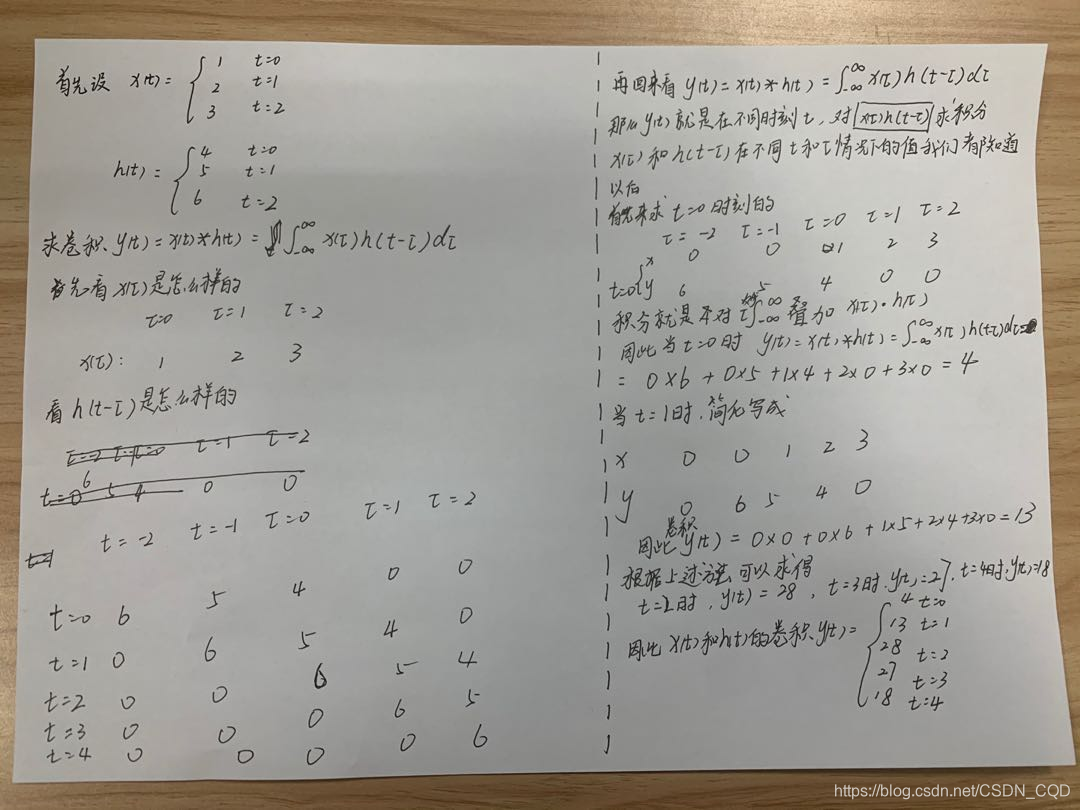 首先设 x(t) = { 1 t=0
2 t=1
3 t=2
h(t) = { 4 t=0
5 t=1
6 t=2
求卷积 y(t) = x(t)*h(t) = ∫_{-∞}^{∞} x(τ)h(t-τ)dτ
首先看 x(τ)是怎么样的
τ=0 τ=1 τ=2
x(τ): 1 2 3
看 h(t-τ)是怎么样的
τ=-2 τ=0 τ=1 τ=2
t=0 6 5 4 0 0
t=-2 t=-1 τ=0 τ=1 τ=2
t=0 6 5 4 0 0
t=1 0 6 5 4 0
t=2 0 0 6 5 4
t=3 0 0 0 6 5
t=4 0 0 0 0 6
再回来看 y(t)=x(t)*h(t) = ∫_{-∞}^{∞} x(τ)h(t-τ)dτ
那么y(t)就是在不同时刻t, 对 x(τ)h(t-τ) 求积分
x(τ)和h(t-τ)在不同t和τ情况下的值我们都知道
以后
首先来求 t=0时刻的
τ=-2 τ=-1 τ=0 τ=1 τ=2
t=0 { x 0 0 1 2 3
y 6 5 4 0 0
积分就是对 ∫_{-∞}^{∞} 叠加 x(τ)·h(τ)
因此当t=0时 y(t)=x(t)*h(t)=∫_{-∞}^{∞} x(τ)h(t-τ)dτ=
= 0×6 + 0×5 + 1×4 + 2×0 + 3×0 = 4
当 t=1时, 简化写成
x 0 0 1 2 3
y 0 6 5 4 0
因此卷积 y(t) = 0×0 + 0×6 + 1×5 + 2×4 + 3×0 = 13
根据上述方法可以求得
t=2时, y(t)=28, t=3时, y(t)=27, t=4时, y(t)=18
因此 x(t)和h(t)的卷积 y(t) = { 4 t=0
13 t=1
28 t=2
27 t=3
18 t=4
https://blog.csdn.net/CSDN_CQD